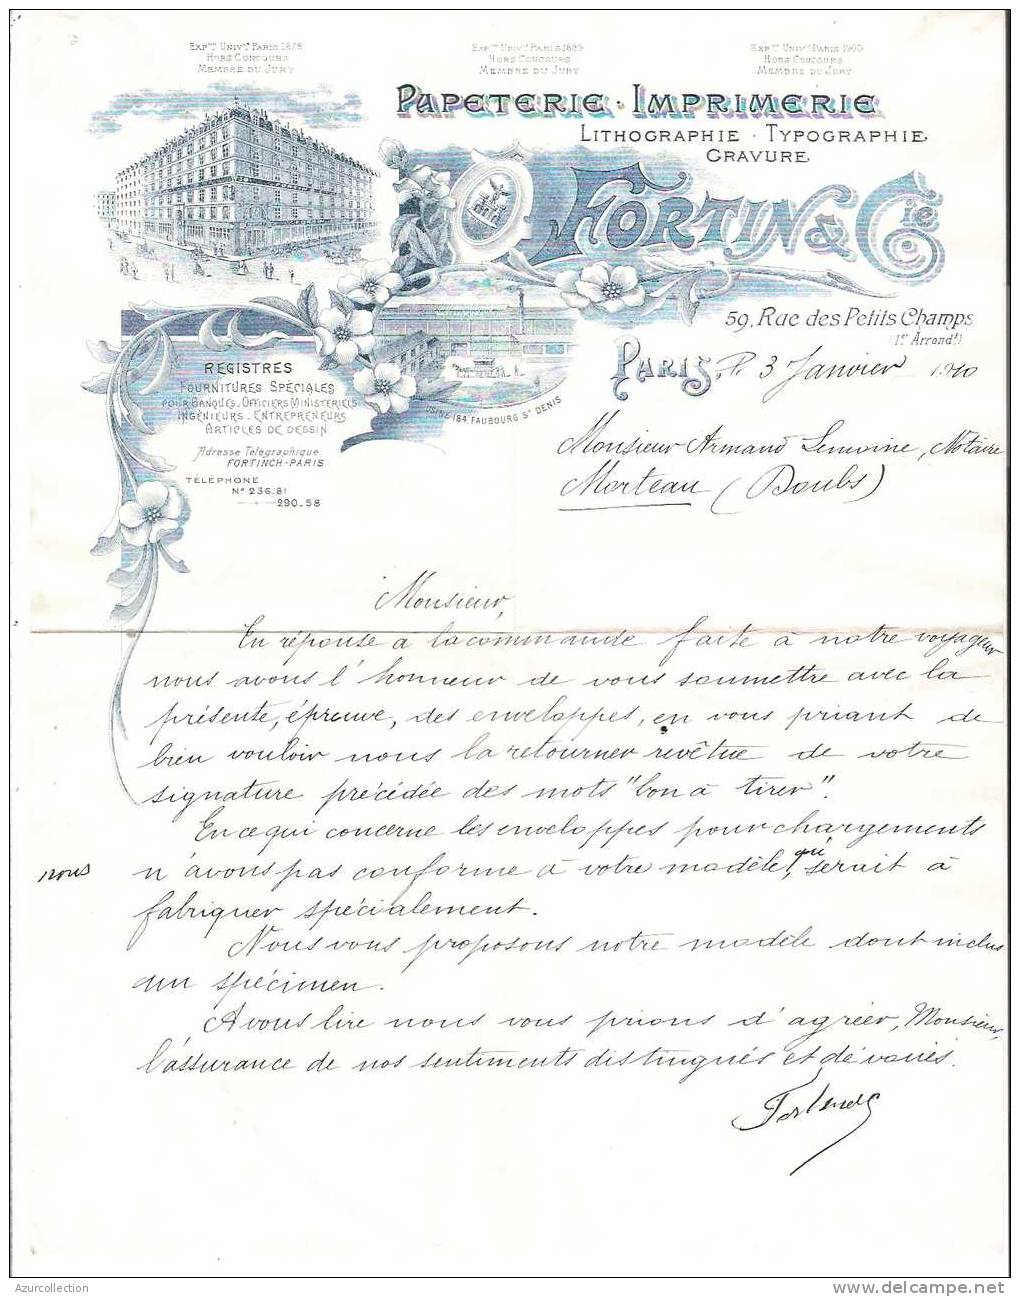 Expon Univlle Paris 1878
Hors Concours
Membre du Jury
Expon Univlle Paris 1889
Hors Concours
Membre du Jury
Expon Univlle Paris 1900
Hors Concours
Membre du Jury
Papeterie · Imprimerie
Lithographie · Typographie
Gravure
Fortin & Cie
59, Rue des Petits Champs
(1er Arrondt)
Paris, le 3 Janvier 1910
Registres
Fournitures Spéciales
pour Banques, Officiers Ministeriels
Ingénieurs, Entrepreneurs
Articles de Dessin
Adresse Télégraphique
FORTINCH-PARIS
Téléphone
No 236.81
290-58
Usine 184, Faubourg St Denis
Monsieur Armand Lemoine, Notaire
Morteau (Doubs)
Monsieur,
En réponse à la commande faite à notre voyageur
nous avons l'honneur de vous soumettre avec la
présente, épreuve, des enveloppes, en vous priant de
bien vouloir nous la retourner revêtue de votre
signature précédée des mots "bon à tirer".
En ce qui concerne les enveloppes pour chargements
nous n'avons pas conforme à votre modèle, qui serait à
fabriquer spécialement.
Nous vous proposons notre modèle dont inclus
un spécimen.
A vous lire nous vous prions d'agréer, Monsieur,
l'assurance de nos sentiments distingués et dévoués.
Azurcollection
www.delcampe.net